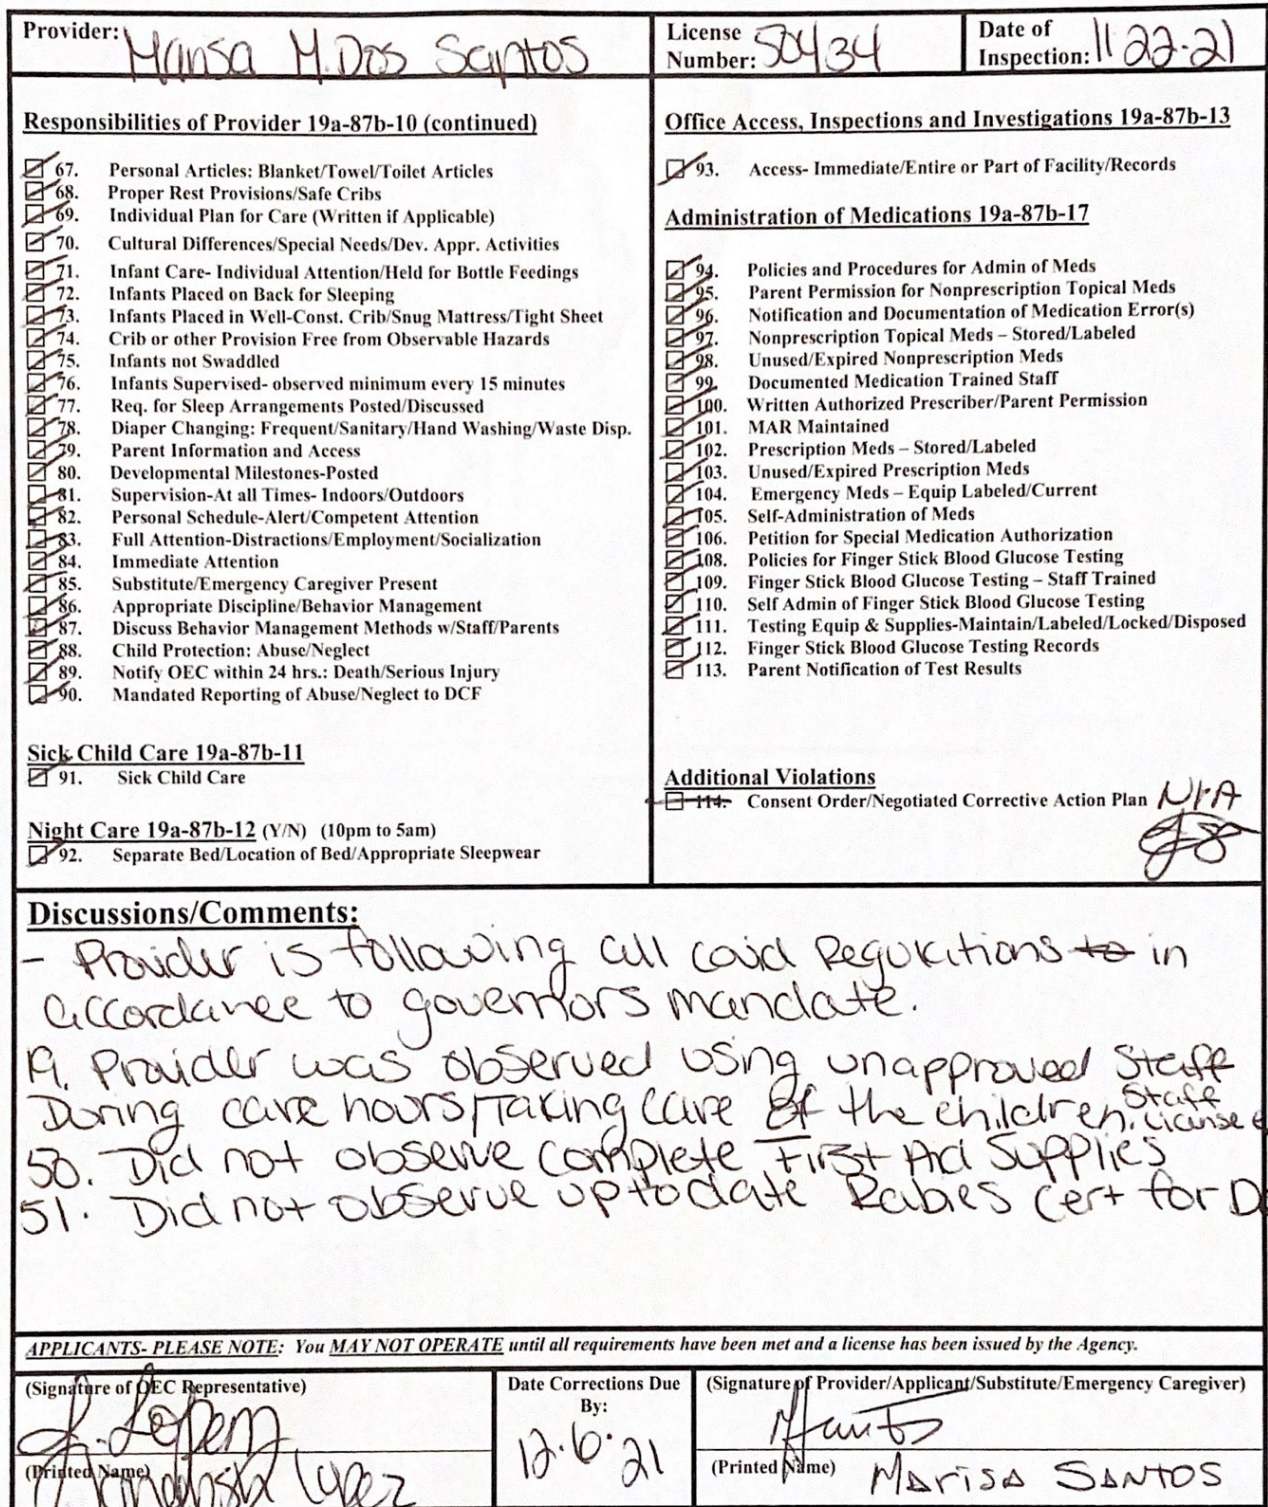 Provider: Marisa M. Dos Santos
License Number: 50434
Date of Inspection: 11 22-21
Responsibilities of Provider 19a-87b-10 (continued)
67. Personal Articles: Blanket/Towel/Toilet Articles
68. Proper Rest Provisions/Safe Cribs
69. Individual Plan for Care (Written if Applicable)
70. Cultural Differences/Special Needs/Dev. Appr. Activities
71. Infant Care- Individual Attention/Held for Bottle Feedings
72. Infants Placed on Back for Sleeping
73. Infants Placed in Well-Const. Crib/Snug Mattress/Tight Sheet
74. Crib or other Provision Free from Observable Hazards
75. Infants not Swaddled
76. Infants Supervised- observed minimum every 15 minutes
77. Req. for Sleep Arrangements Posted/Discussed
78. Diaper Changing: Frequent/Sanitary/Hand Washing/Waste Disp.
79. Parent Information and Access
80. Developmental Milestones-Posted
81. Supervision-At all Times- Indoors/Outdoors
82. Personal Schedule-Alert/Competent Attention
83. Full Attention-Distractions/Employment/Socialization
84. Immediate Attention
85. Substitute/Emergency Caregiver Present
86. Appropriate Discipline/Behavior Management
87. Discuss Behavior Management Methods w/Staff/Parents
88. Child Protection: Abuse/Neglect
89. Notify OEC within 24 hrs.: Death/Serious Injury
90. Mandated Reporting of Abuse/Neglect to DCF
Sick Child Care 19a-87b-11
91. Sick Child Care
Night Care 19a-87b-12 (Y/N) (10pm to 5am)
92. Separate Bed/Location of Bed/Appropriate Sleepwear
Office Access, Inspections and Investigations 19a-87b-13
93. Access- Immediate/Entire or Part of Facility/Records
Administration of Medications 19a-87b-17
94. Policies and Procedures for Admin of Meds
95. Parent Permission for Nonprescription Topical Meds
96. Notification and Documentation of Medication Error(s)
97. Nonprescription Topical Meds – Stored/Labeled
98. Unused/Expired Nonprescription Meds
99. Documented Medication Trained Staff
100. Written Authorized Prescriber/Parent Permission
101. MAR Maintained
102. Prescription Meds – Stored/Labeled
103. Unused/Expired Prescription Meds
104. Emergency Meds – Equip Labeled/Current
105. Self-Administration of Meds
106. Petition for Special Medication Authorization
108. Policies for Finger Stick Blood Glucose Testing
109. Finger Stick Blood Glucose Testing – Staff Trained
110. Self Admin of Finger Stick Blood Glucose Testing
111. Testing Equip & Supplies-Maintain/Labeled/Locked/Disposed
112. Finger Stick Blood Glucose Testing Records
113. Parent Notification of Test Results
Additional Violations
114. Consent Order/Negotiated Corrective Action Plan N/A
Discussions/Comments:
- Provider is following all covid Regulations to in
accordance to governors mandate.
19. Provider was observed using unapproved Staff
During care hours/Taking care of the children. Staff License
50. Did not observe complete First Aid Supplies
51. Did not observe up to date Rabies Cert for
APPLICANTS- PLEASE NOTE: You MAY NOT OPERATE until all requirements have been met and a license has been issued by the Agency.
(Signature of OEC Representative)
Lopez
(Printed Name) Lopez
Date Corrections Due By:
12.6.21
(Signature of Provider/Applicant/Substitute/Emergency Caregiver)
(Printed Name) MARISA SANTOS